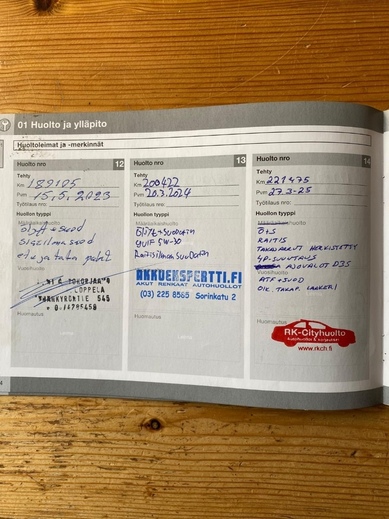 01 Huolto ja ylläpito
Huoltoleimat ja -merkinnät
Huolto nro 12
Tehty
Km 189105
Pvm 15.5.2023
Työtilaus nro:
Huollon tyyppi
Määräaikaishuolto
öljyt + suod
Vuosihuolto
LOPPELA
545
Huomautus
Huolto nro 13
Tehty
Km 200422
Pvm 20.3.2024
Työtilaus nro:
Huollon tyyppi
Määräaikaishuolto
Öljyt + suodatin
5W-30
Raitisilmansuodatin
AKKUEKSPERTTI.FI
AKUT RENKAAT AUTOHUOLLOT
(03) 225 8565 Sorinkatu 2
Huomautus
Huolto nro 14
Tehty
Km 221475
Pvm 27.3-25
Työtilaus nro:
Huollon tyyppi
Määräaikaishuolto
Ö+S
RAITIS
TAKAJARRUT HERKISTETTY
4P-SUUNTAUS
AJOVALOT D3S
Vuosihuolto
OIK. TAKAP. LAAKERI
RK-Cityhuolto
www.rkch.fi
Huomautus